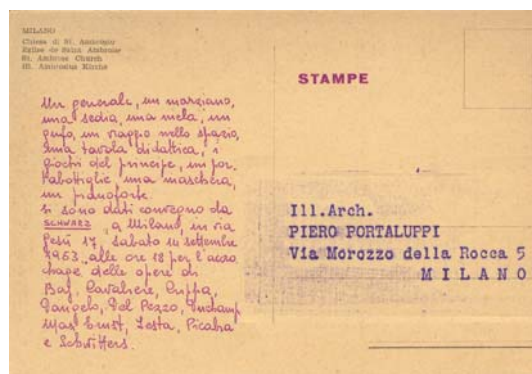 MILANO
Chiesa di St. Ambrogio
Eglise de Saint Ambroise
St. Ambrose Church
Hl. Ambrosius Kirche
STAMPE
Un generale, un marziano,
una sedia, una mela, un
gufo, un viaggio nello spazio,
una tavola didattica, i
giochi del principe, un por-
tabottiglie, una maschera,
un pianoforte
si sono dati convegno da
SCHWARZ, a Milano, in via
Gesù 17, sabato 14 settembre
1963, alle ore 18 per l'accro
chage delle opere di
Baj, Cavaliere, Crippa,
Dangelo, Del Pezzo, Duchamp
Max Ernst, Festa, Picabia
e Schwitters.
Ill.Arch.
PIERO PORTALUPPI
Via Morozzo della Rocca 5
MILANO